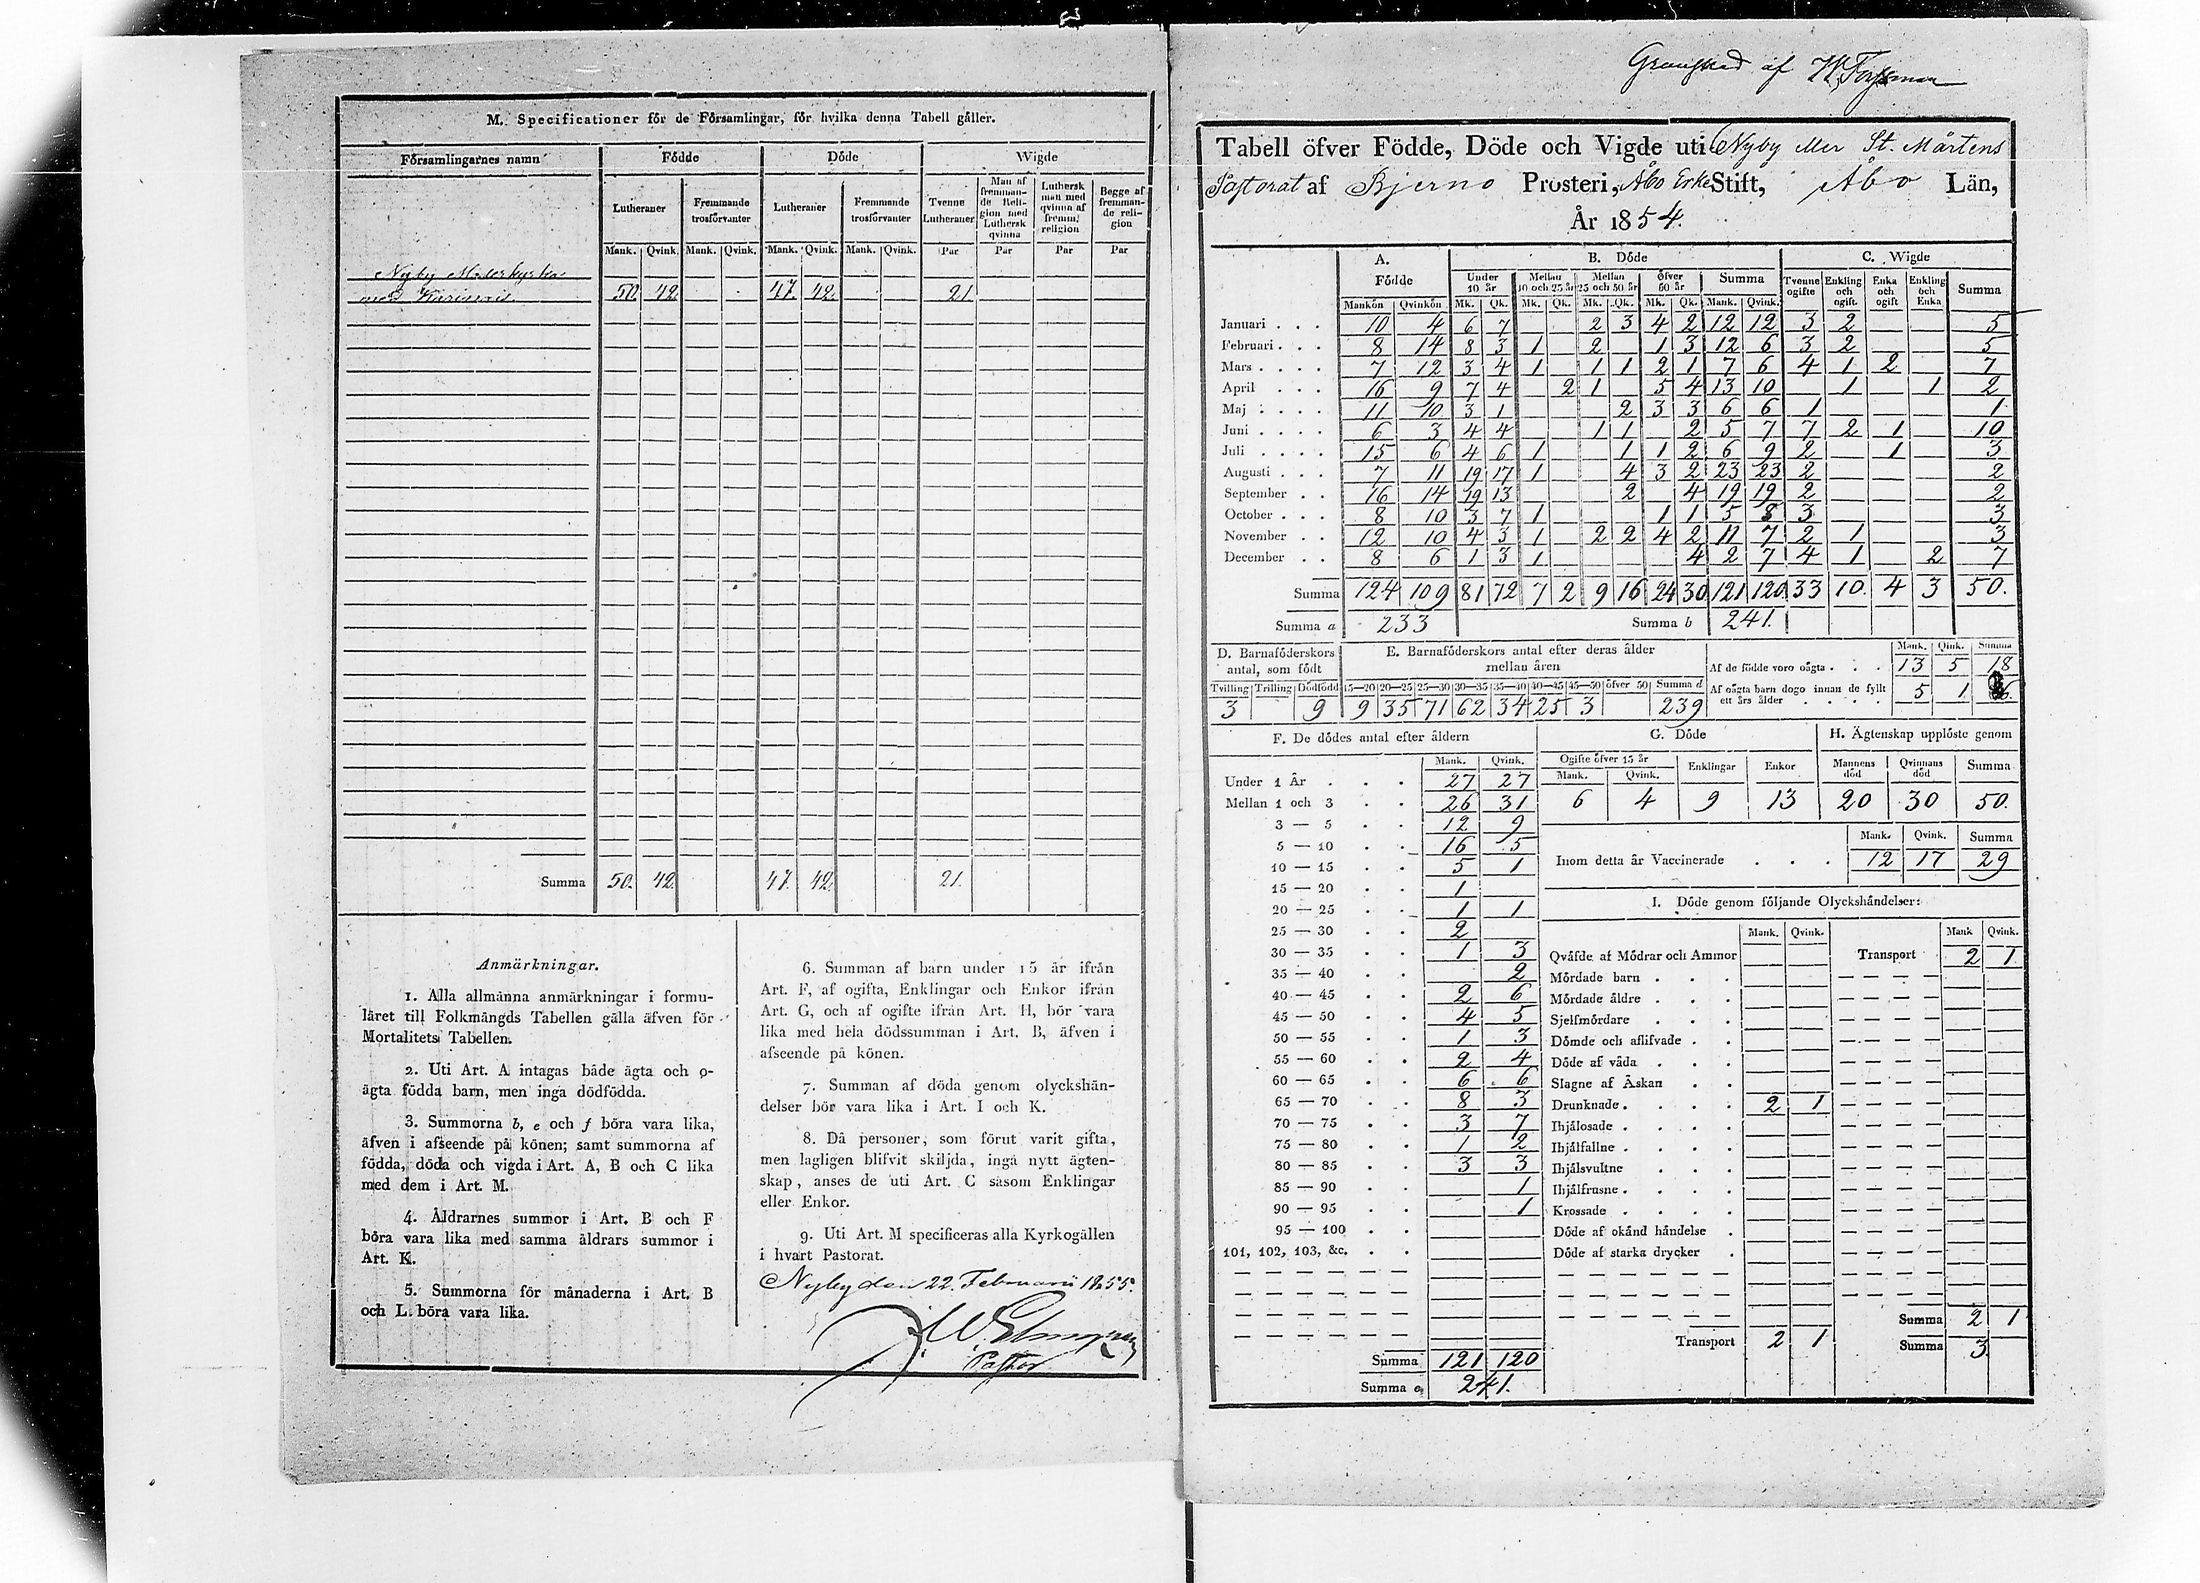 M. Specificationer för de Församlingar, för hvilka denna Tabell gäller.
Församlingarnes namn Födde Döde Wigde
Lutheraner Fremmande trosförvanter Lutheraner Fremmande trosförvanter Tvenne Lutheraner Man af fremmande Religion med Luthersk qvinna Luthersk man med qvinna af fremm. religion Begge af fremmande religion
Mank. Qvink. Mank. Qvink. Mank. Qvink. Mank. Qvink. Par Par Par Par
Nyby Moderkyrka
med Karinais 50. 42. 47. 42. 21.
Summa 50. 42. 47. 42. 21.
Anmärkningar.
1. Alla allmänna anmärkningar i formu-
läret till Folkmängds Tabellen gälla äfven för
Mortalitets Tabellen.
2. Uti Art. A intagas både ägta och o-
ägta födda barn, men inga dödfödda.
3. Summorna b, e och f böra vara lika,
äfven i afseende på könen; samt summorna af
födda, döda och vigda i Art. A, B och C lika
med dem i Art. M.
4. Åldrarnes summor i Art. B och F
böra vara lika med samma åldrars summor i
Art. K.
5. Summorna för månaderna i Art. B
och L. böra vara lika.
6. Summan af barn under 15 år ifrån
Art. F, af ogifta, Enklingar och Enkor ifrån
Art. G, och af ogifte ifrån Art. H, bör vara
lika med hela dödssumman i Art. B, äfven i
afseende på könen.
7. Summan af döda genom olyckshän-
delser bör vara lika i Art. I och K.
8. Då personer, som förut varit gifta,
men lagligen blifvit skiljda, ingå nytt ägten-
skap, anses de uti Art. C såsom Enklingar
eller Enkor.
9. Uti Art. M specificeras alla Kyrkogällen
i hvart Pastorat.
Nyby den 22. Februarii 1855.
Pastor
Granskad af
Tabell öfver Födde, Döde och Vigde uti Nyby eller St. Mårtens
Pastorat af Bjerno Prosteri, Åbo Erke Stift, Åbo Län,
År 1854.
A. Födde B. Döde C. Wigde
Under 10 år Mellan 10 och 25 år Mellan 25 och 50 år Öfver 50 år Summa Tvenne ogifte Enkling och ogift. Enka och ogift Enkling och Enka Summa
Mankön Qvinkön Mk. Qk. Mk. Qk. Mk. Qk. Mk. Qk. Mank. Qvink.
Januari . . . 10 4 6 7 2 3 4 2 12 12 3 2 5
Februari . . . 8 14 8 3 1 2 1 3 12 6 3 2 5
Mars . . . . 7 12 3 4 1 1 1 2 1 7 6 4 1 2 7
April . . . . 16 9 7 4 2 1 5 4 13 10 1 1 2
Maj . . . . 11 10 3 1 2 3 3 6 6 1 1
Juni . . . . 6 3 4 4 1 1 2 5 7 7 2 1 10
Juli . . . . 15 6 4 6 1 1 1 2 6 9 2 1 3
Augusti . . . 7 11 19 17 1 4 3 2 23 23 2 2
September . . 16 14 19 13 2 4 19 19 2 2
October . . . 8 10 3 7 1 1 1 5 8 3 3
November . . 12 10 4 3 1 2 2 4 2 11 7 2 1 3
December . . 8 6 1 3 1 4 2 7 4 1 2 7
Summa 124 109 81 72 7 2 9 16 24 30 121 120 33 10. 4 3 50.
Summa a 233 Summa b 241.
D. Barnaföderskors antal, som födt E. Barnaföderskors antal efter deras ålder mellan åren
Tvilling Trilling Dödfödd 15—20 20—25 25—30 30—35 35—40 40—45 45—50 öfver 50 Summa d
3 9 9 35 71 62 34 25 3 239
Mank. Qink. Summa
Af de födde voro oägta . . . 13 5 18
Af oägta barn dogo innan de fyllt ett års ålder . . . . 5 1 6.
F. De dödes antal efter åldern
Mank. Qvink.
Under 1 År 27 27
Mellan 1 och 3 26 31
3 — 5 12 9
5 — 10 16 5
10 — 15 5 1
15 — 20 1
20 — 25 1 1
25 — 30 2
30 — 35 1 3
35 — 40 2
40 — 45 2 6
45 — 50 4 5
50 — 55 1 3
55 — 60 2 4
60 — 65 6 6
65 — 70 8 3
70 — 75 3 7
75 — 80 1 2
80 — 85 3 3
85 — 90 1
90 — 95 1
95 — 100
101, 102, 103, &c.
Summa 121 120
Summa e 241.
G. Döde H. Ägtenskap upplöste genom
Ogifte öfver 15 år Enklingar Enkor Mannens död Qvinnans död Summa
Mank. Qvink.
6 4 9 13 20 30 50.
Mank. Qvink. Summa
Inom detta år Vaccinerade . . . 12 17 29
I. Döde genom följande Olyckshändelser:
Mank. Qvink. Mank Qvink.
Qväfde af Mödrar och Ammor Transport 2 1
Mördade barn . . .
Mördade äldre . . .
Sjelfmördare . . .
Dömde och aflifvade . .
Döde af våda . . .
Slagne af Åskan . .
Drunknade . . . . 2 1
Ihjälosade . . . .
Ihjälfallne . . . .
Ihjälsvultne . . .
Ihjälfrusne . . . .
Krossade . . . .
Döde af okänd händelse .
Döde af starka drycker .
Summa 2 1
Transport 2 1 Summa 3.